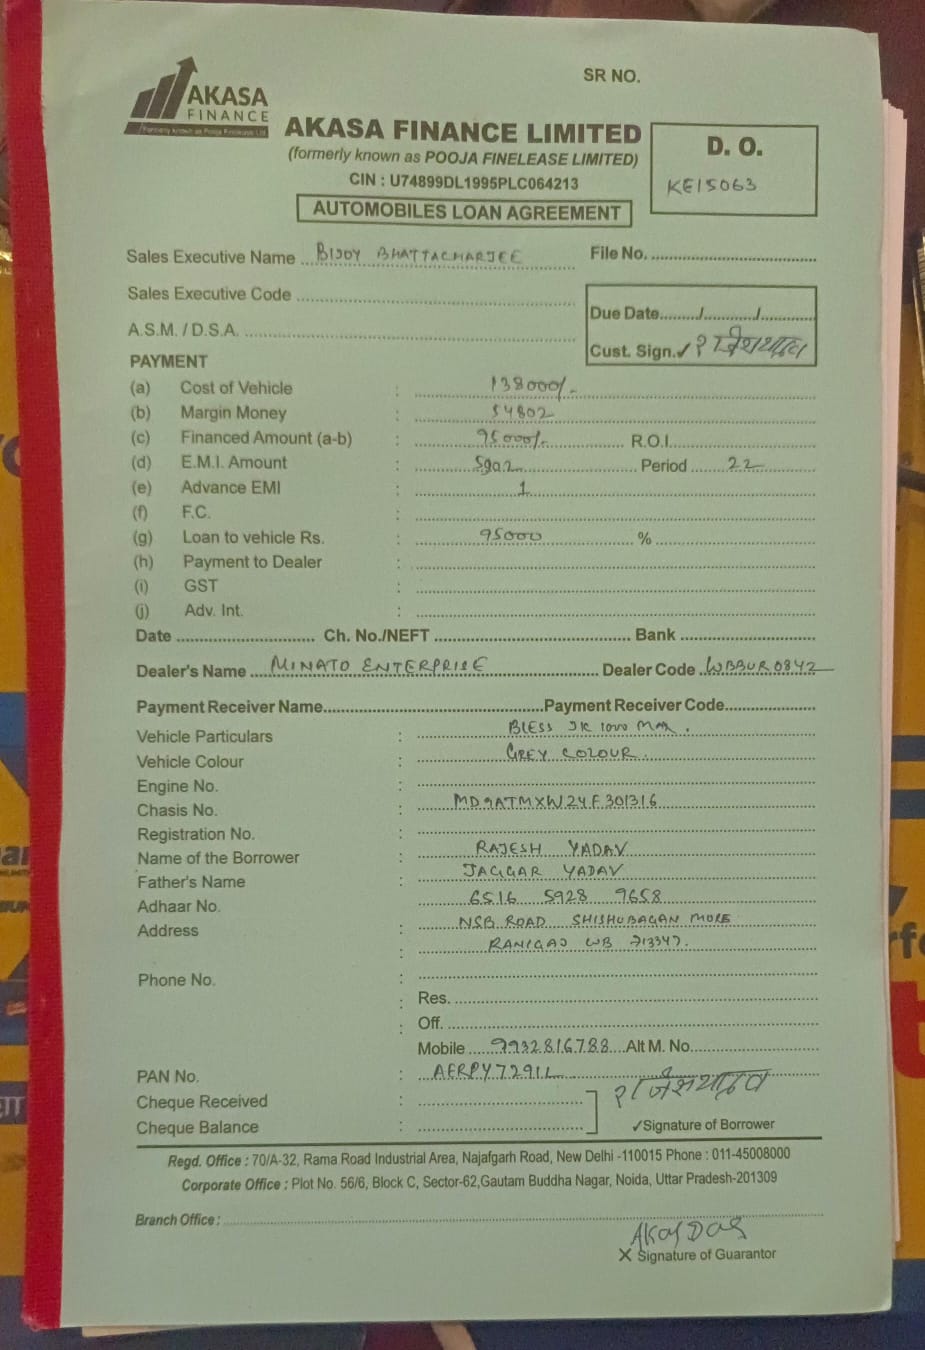 SR NO.
AKASA
FINANCE
Formerly known as Pooja Finelease Ltd
AKASA FINANCE LIMITED
(formerly known as POOJA FINELEASE LIMITED)
CIN : U74899DL1995PLC064213
AUTOMOBILES LOAN AGREEMENT
D. O.
KE15063
Sales Executive Name BIJOY BHATTACHARJEE
File No.
Sales Executive Code
A.S.M. / D.S.A.
Due Date / /
Cust. Sign.✓ राजेशयादव
PAYMENT
(a) Cost of Vehicle : 138000/-
(b) Margin Money : 54802
(c) Financed Amount (a-b) : 95000/- R.O.I.
(d) E.M.I. Amount : 5922 Period 22
(e) Advance EMI : 1
(f) F.C. :
(g) Loan to vehicle Rs. : 95000 %
(h) Payment to Dealer :
(i) GST :
(j) Adv. Int. :
Date Ch. No./NEFT Bank
Dealer's Name MINATO ENTERPRISE Dealer Code WBBUR0842
Payment Receiver Name Payment Receiver Code
Vehicle Particulars : BLESS JK 1000 MAX.
Vehicle Colour : GREY COLOUR.
Engine No. :
Chasis No. : MD9ATMXW24F301316
Registration No. :
Name of the Borrower : RAJESH YADAV
Father's Name : JAGGAR YADAV
Adhaar No. : 6516 5928 9658
Address : NSB ROAD SHISHUBAGAN MORE
: RANIGAJ WB 713347.
Phone No. :
: Res.
: Off.
Mobile 9932816788 Alt M. No.
PAN No. : AFRPY7291L
Cheque Received :
राजेशयादव
Cheque Balance :
✓Signature of Borrower
Regd. Office : 70/A-32, Rama Road Industrial Area, Najafgarh Road, New Delhi -110015 Phone : 011-45008000
Corporate Office : Plot No. 56/6, Block C, Sector-62,Gautam Buddha Nagar, Noida, Uttar Pradesh-201309
Branch Office :
AKay DaS
X Signature of Guarantor